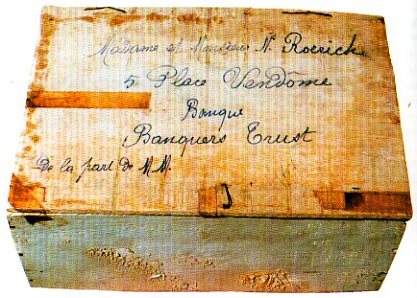 Madame et Monsieur N. Roerich
5 Place Vendôme
Banque
Banquers Trust
de la part de M.M.